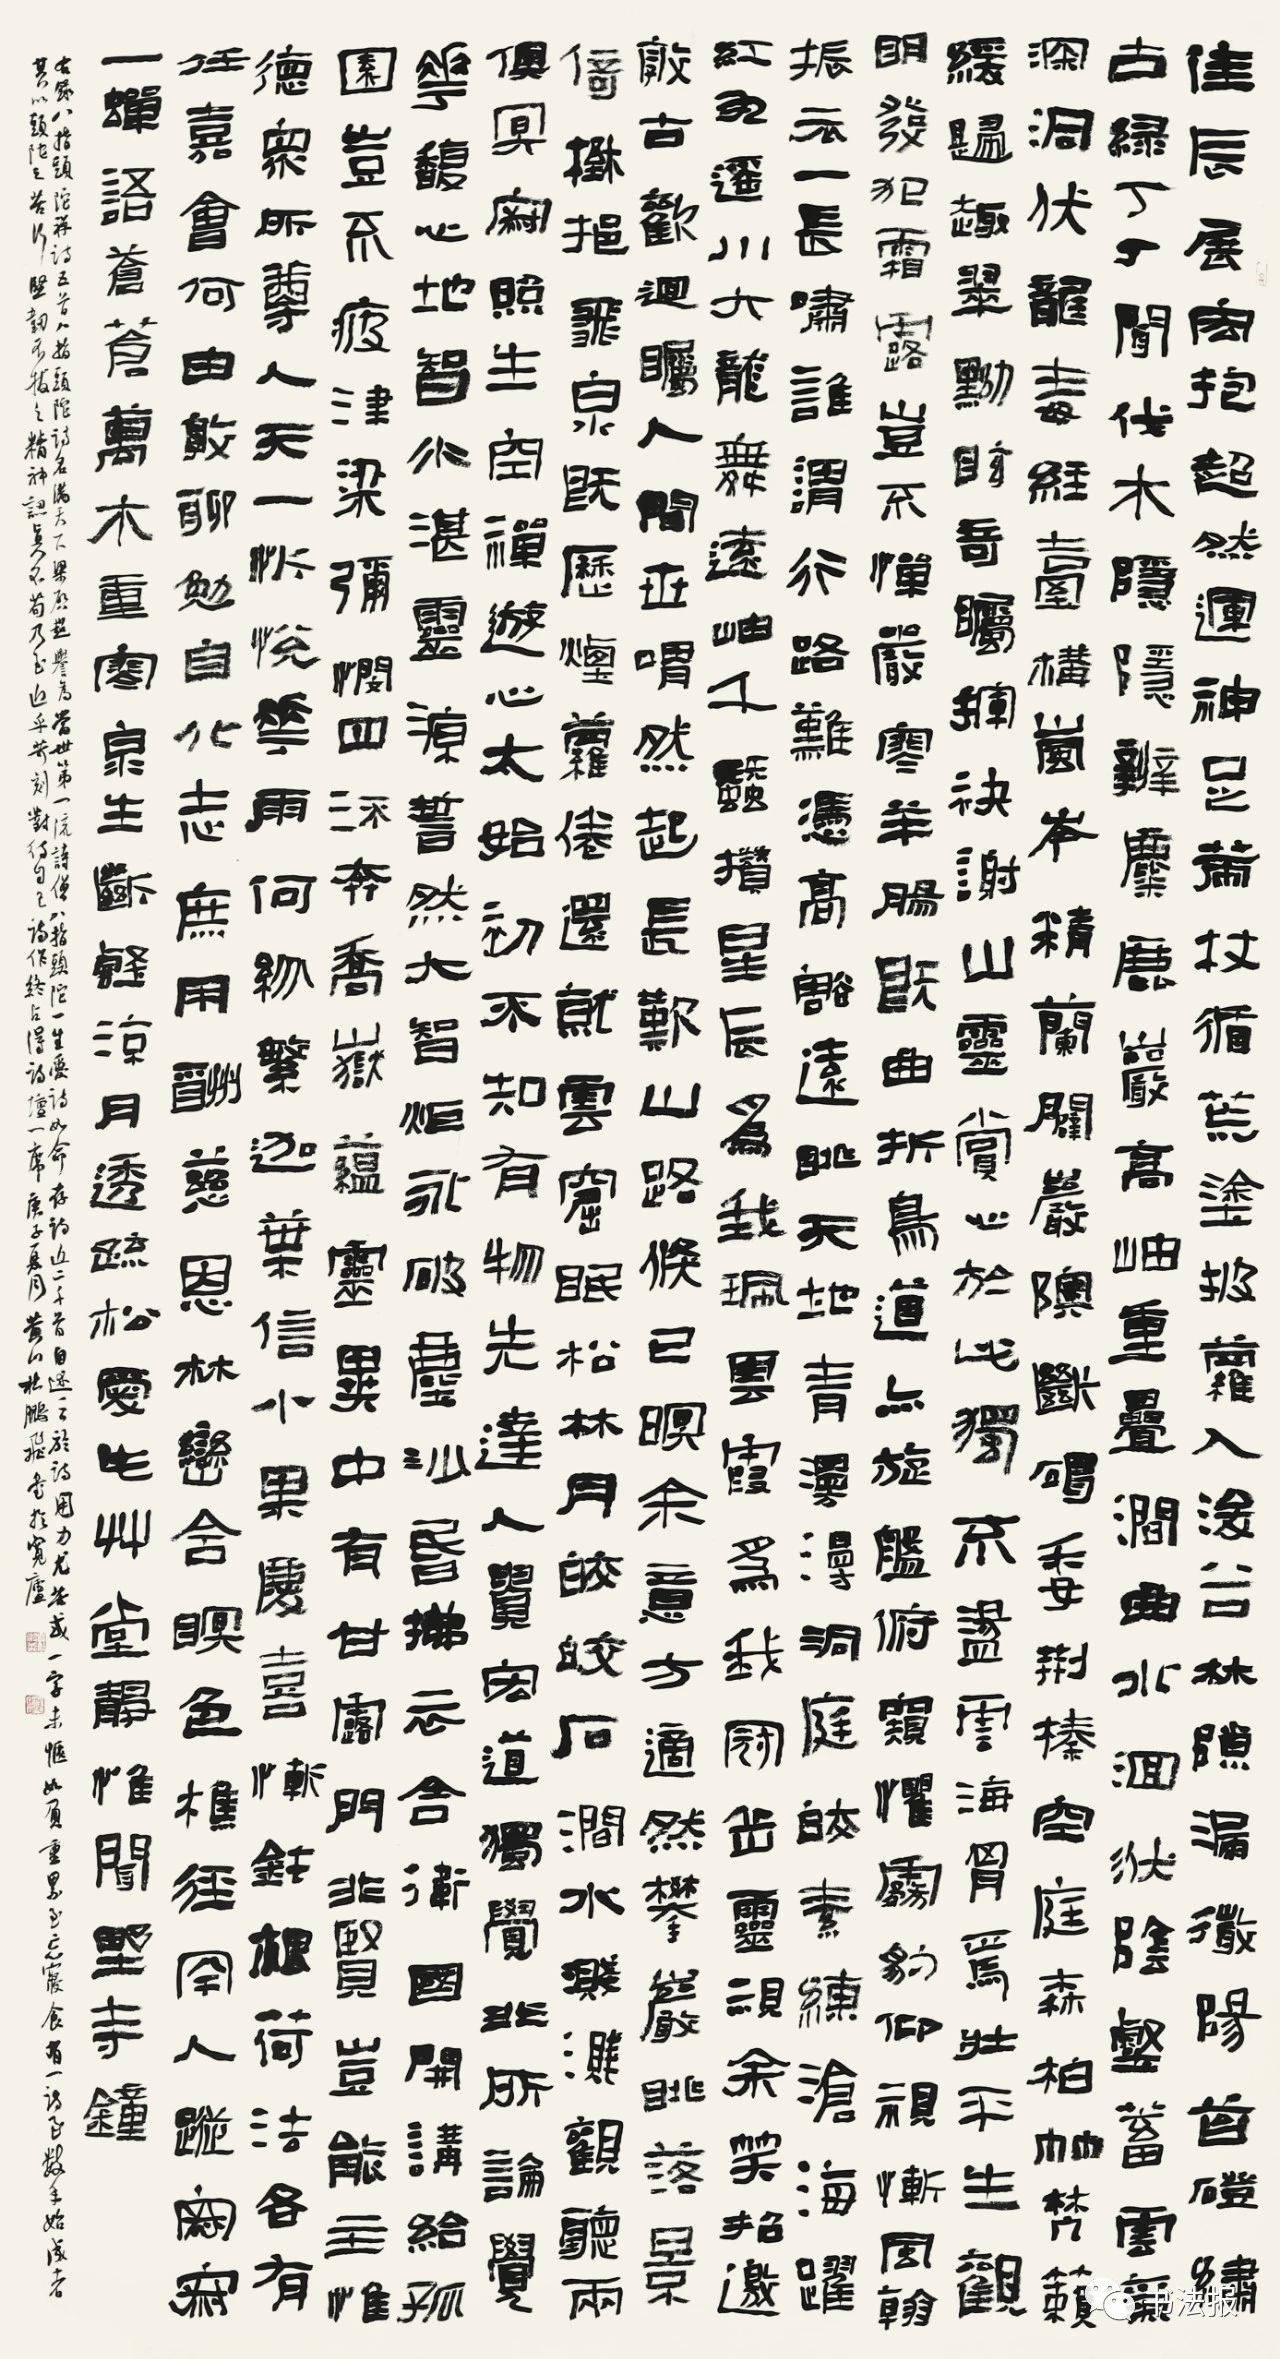 佳辰展抱超然運神足荷杖循荒塗披蘿入深谷林隙漏微陽苔磴繡
古綠丁丁聞伐木隱隱辨麋鹿巖高岫重疊澗曲水洄洑陰壑蓄雲氣
深洞伏龍毒經臺構崟岑精蘭闢巖隩斷碣委荆榛空庭森柏竹梵籟
緩歸趣翠黝吾矚揮袂謝山靈賞心於此獨不盡雲海胷焉壯平生觀
明發犯霜露豈不憚嚴寒羊腸既曲折鳥道亦旋盤俯窺懼霧豹仰視慚風翰
振衣一長嘯誰謂行路難憑高豁遠眺天地青漫漫洞庭皎素練滄海躍
紅丸遥川六龍舞遠岫千蠶攢星辰爲我珮雲霞爲我冠岳靈視余笑招邀
敦古歡迴矚人間世喟然起長歎山路倏已暝余意方適然攀巖眺落景
倚樹挹飛泉既歷煙蘿倦還就雲窟眠松林月皎皎石澗水濺濺觀聽兩
俱冥寂照生空禪遊心太始初不知有物先達人貿宏道獨覺非所論覺
華馥心地智水湛靈源誓然大智炬永破塵沙昏拂衣舍衛國開講給孤
園豈不疲津梁彌憫四流奔喬嶽蘊靈異中有甘露門非賢豈能主惟
德衆所尊人天一忻悦華雨何紛繁迦葉信小果慶喜慚鈍根荷法各有
任嘉會何由敦聊勉自化志庶用酬慈恩林巒含暝色樵徑罕人蹤寂寂
一蟬語蒼蒼萬木重寒泉生斷壑涼月透疏松愛此艸堂靜惟聞野寺鐘
右錄八指頭陀禪詩五首八指頭陀詩名滿天下梁啟超譽爲當世第一流詩僧八指頭陀一生愛詩如命存詩近二千首自述云於詩用力尤苦或一字未愜如負重累至忘寢食有一詩至數年始成者
其以頭陀之苦行堅韌不拔之精神認真不苟乃至近乎苛刻對待自己詩作終占得詩壇一席庚子夏月黄山杜鵬飛書於寬廬
书法报